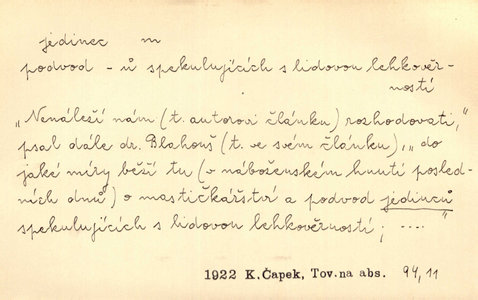 jedinec m
podvod - ů spekulujících s lidovou lehkověr-
ností
„Nenáleží nám (t. autorovi článku) rozhodovati,“
psal dále dr. Blahouš (t. ve svém článku), „do
jaké míry běží tu (v náboženském hnutí posled-
ních dnů) o mastičkářství a podvod jedinců
spekulujících s lidovou lehkověrností; ....“
1922 K. Čapek, Tov. na abs. 94, 11